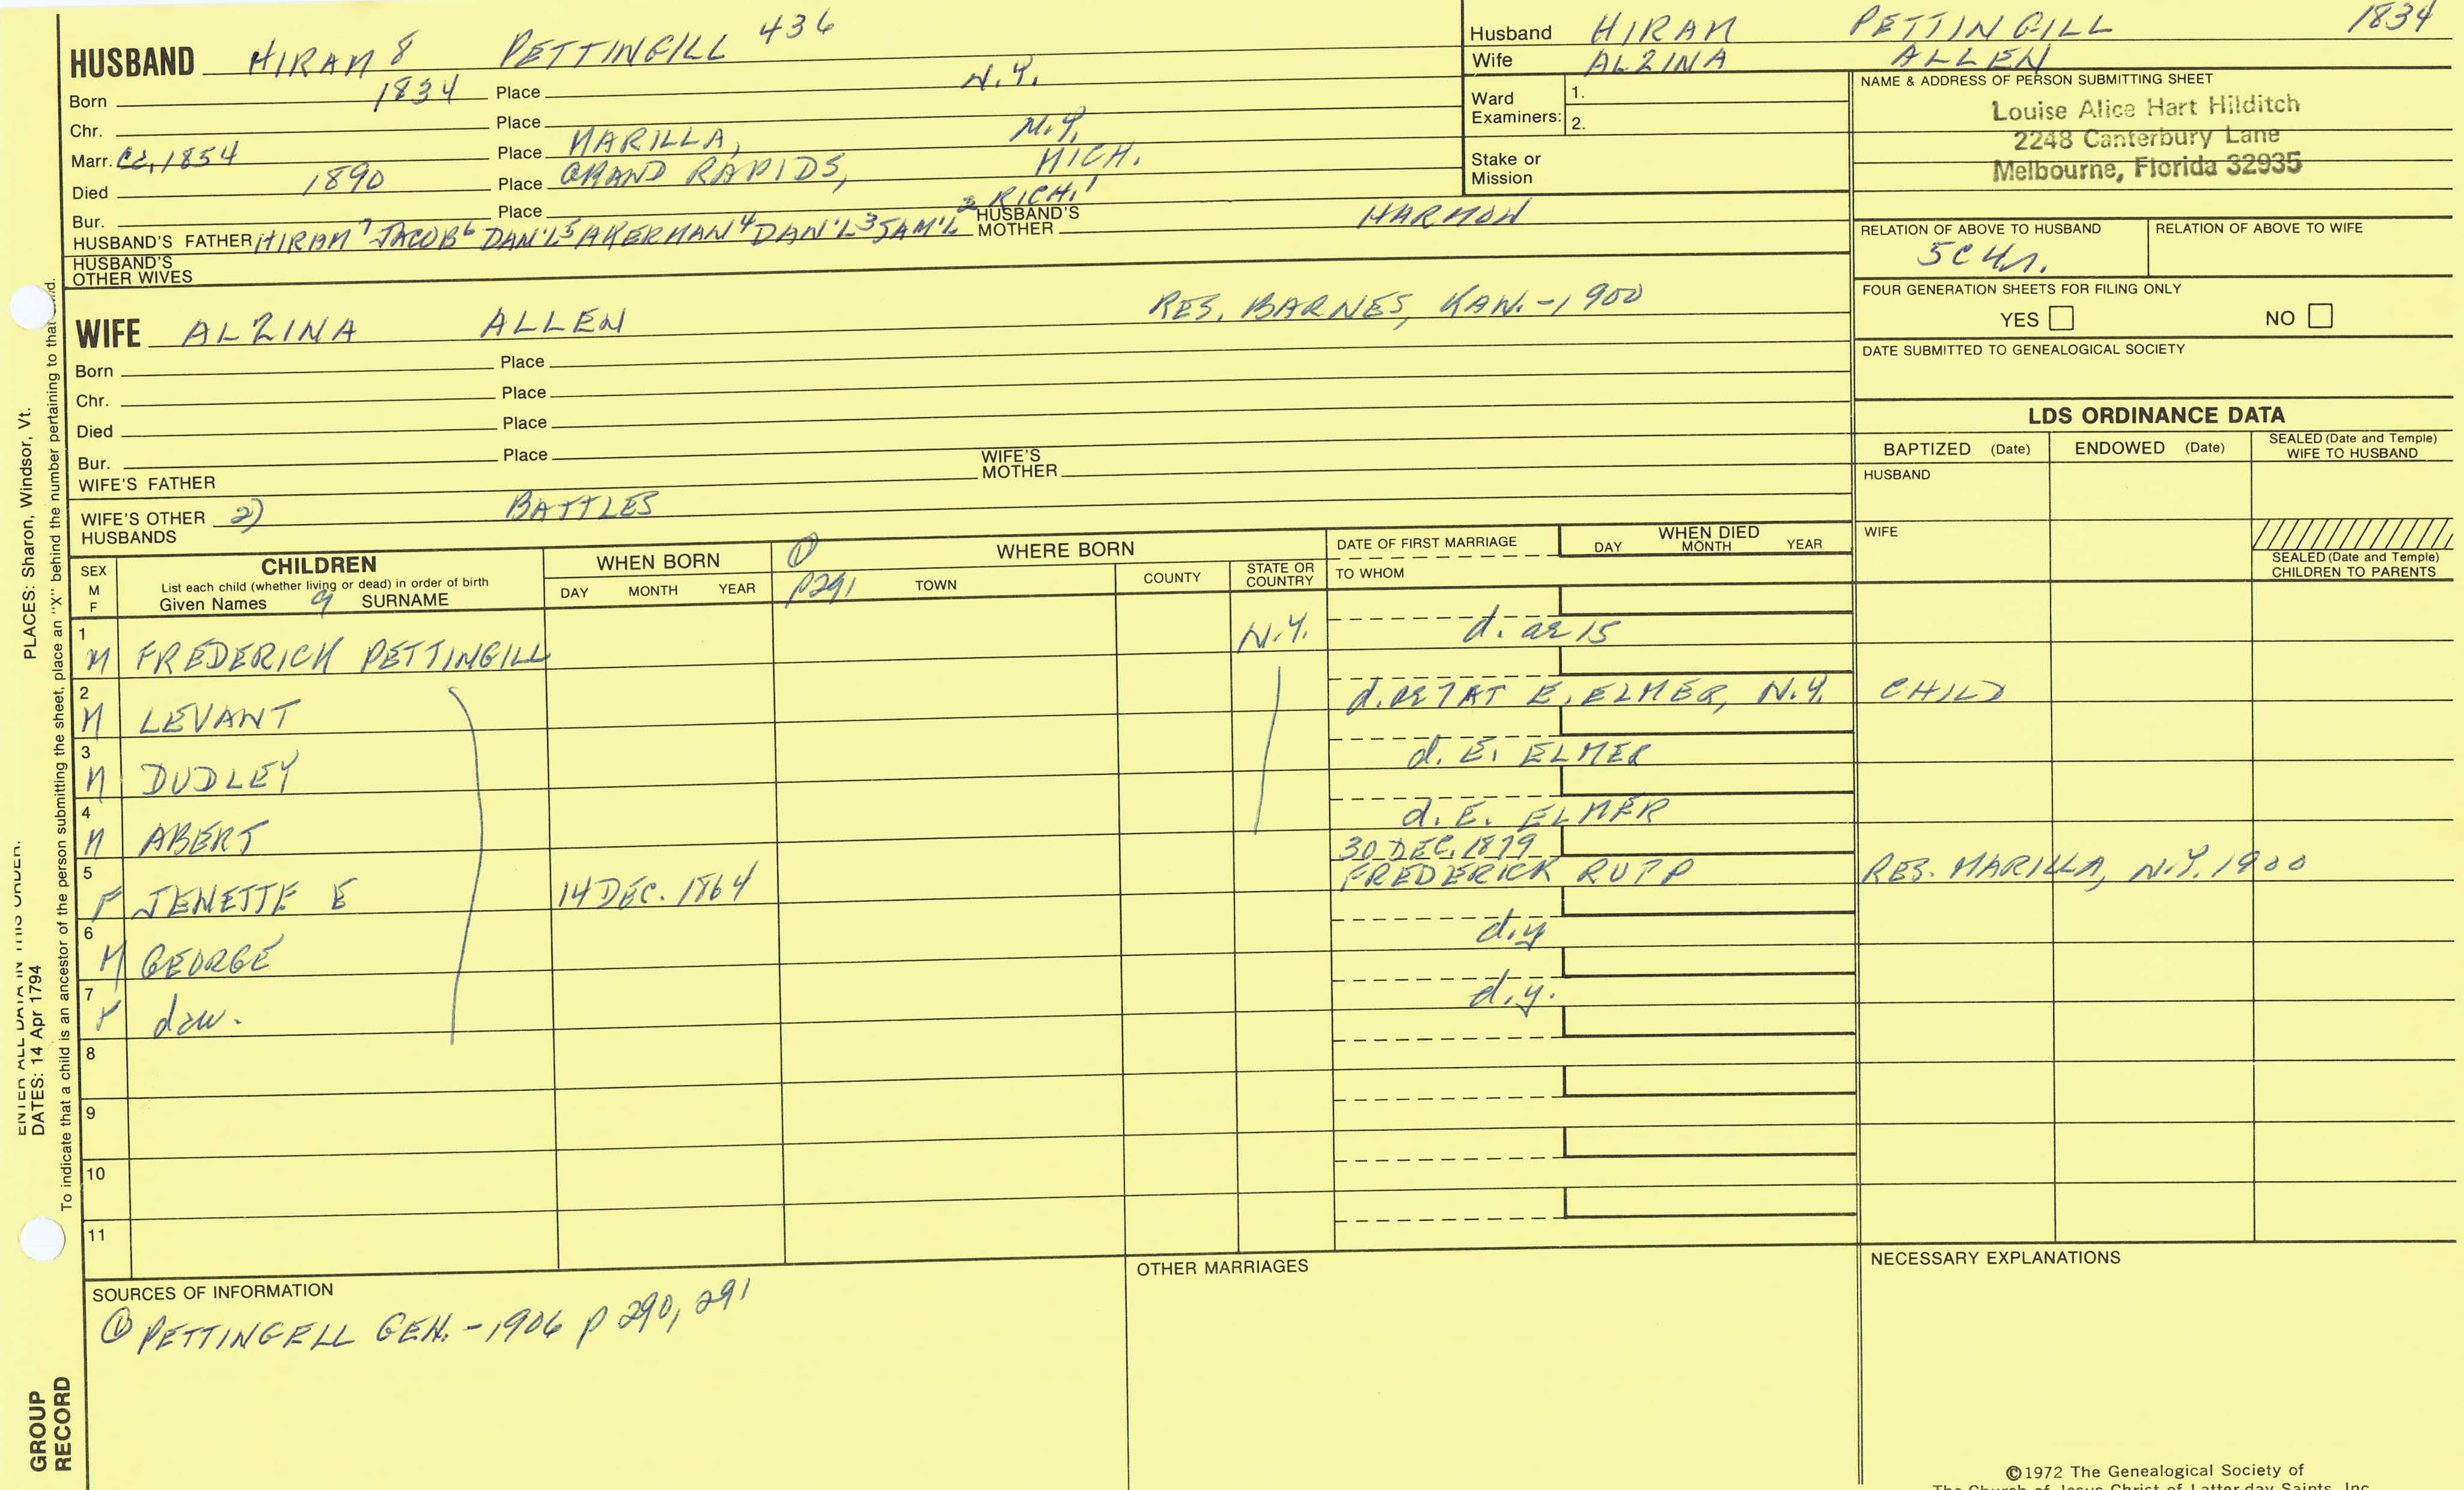 HUSBAND HIRAM 8 PETTINGILL 436
Born 1834 Place N.Y.
Chr. Place
Marr. Ca. 1854 Place MARILLA, N.Y.
Died 1890 Place GRAND RAPIDS, MICH.
Bur. Place
HUSBAND'S FATHER HIRAM 7 JACOB 6 DAN'L 5 AKERMAN 4 DAN'L 3 SAM'L 2 RICH. 1 HUSBAND'S MOTHER HARMON
HUSBAND'S OTHER WIVES
Husband HIRAM PETTINGILL 1834
Wife ALZINA ALLEN
Ward Examiners: 1.
2.
Stake or Mission
NAME & ADDRESS OF PERSON SUBMITTING SHEET
Louise Alice Hart Hilditch
2248 Canterbury Lane
Melbourne, Florida 32935
RELATION OF ABOVE TO HUSBAND RELATION OF ABOVE TO WIFE
5C4r.
FOUR GENERATION SHEETS FOR FILING ONLY
YES NO
DATE SUBMITTED TO GENEALOGICAL SOCIETY
WIFE ALZINA ALLEN RES. BARNES, KAN. - 1900
Born Place
Chr. Place
Died Place
Bur. Place
WIFE'S FATHER WIFE'S MOTHER
WIFE'S OTHER HUSBANDS 2) BATTLES
LDS ORDINANCE DATA
BAPTIZED (Date) ENDOWED (Date) SEALED (Date and Temple) WIFE TO HUSBAND
HUSBAND
WIFE
SEALED (Date and Temple) CHILDREN TO PARENTS
SEX M F
CHILDREN
List each child (whether living or dead) in order of birth
Given Names 9 SURNAME
WHEN BORN
DAY MONTH YEAR
① p291
WHERE BORN
TOWN COUNTY STATE OR COUNTRY
DATE OF FIRST MARRIAGE
TO WHOM
WHEN DIED
DAY MONTH YEAR
1 M FREDERICK PETTINGILL N.Y. d. ae 15
2 M LEVANT d. ae 7 AT E. ELMER, N.Y. CHILD
3 M DUDLEY d. E. ELMER
4 M ABERT d. E. ELMER
5 F JENETTE E 14 DEC. 1864 30 DEC. 1879 FREDERICK RUPP RES. MARILLA, N.Y. 1900
6 M GEORGE d.y
7 F daw. d.y.
8
9
10
11
SOURCES OF INFORMATION
① PETTINGELL GEN. - 1906 p 290, 291
OTHER MARRIAGES
NECESSARY EXPLANATIONS
©1972 The Genealogical Society of
The Church of Jesus Christ of Latter-day Saints, Inc.
PLACES: Sharon, Windsor, Vt.
To indicate that a child is an ancestor of the person submitting the sheet, place an "X" behind the number pertaining to that child.
ENTER ALL DATA IN THIS ORDER:
DATES: 14 Apr 1794
GROUP
RECORD